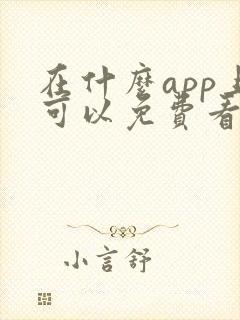 在什麼app上
可以免費看
小言舒